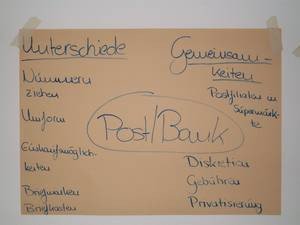 Unterschiede
Nummern
ziehen
Uniform
Einkaufsmöglich-
keiten
Briefmarken
Briefkasten
Post/Bank
Gemeinsam-
keiten
Postfilialen in
Supermärk-
te
Diskretion
Gebühren
Privatisierung